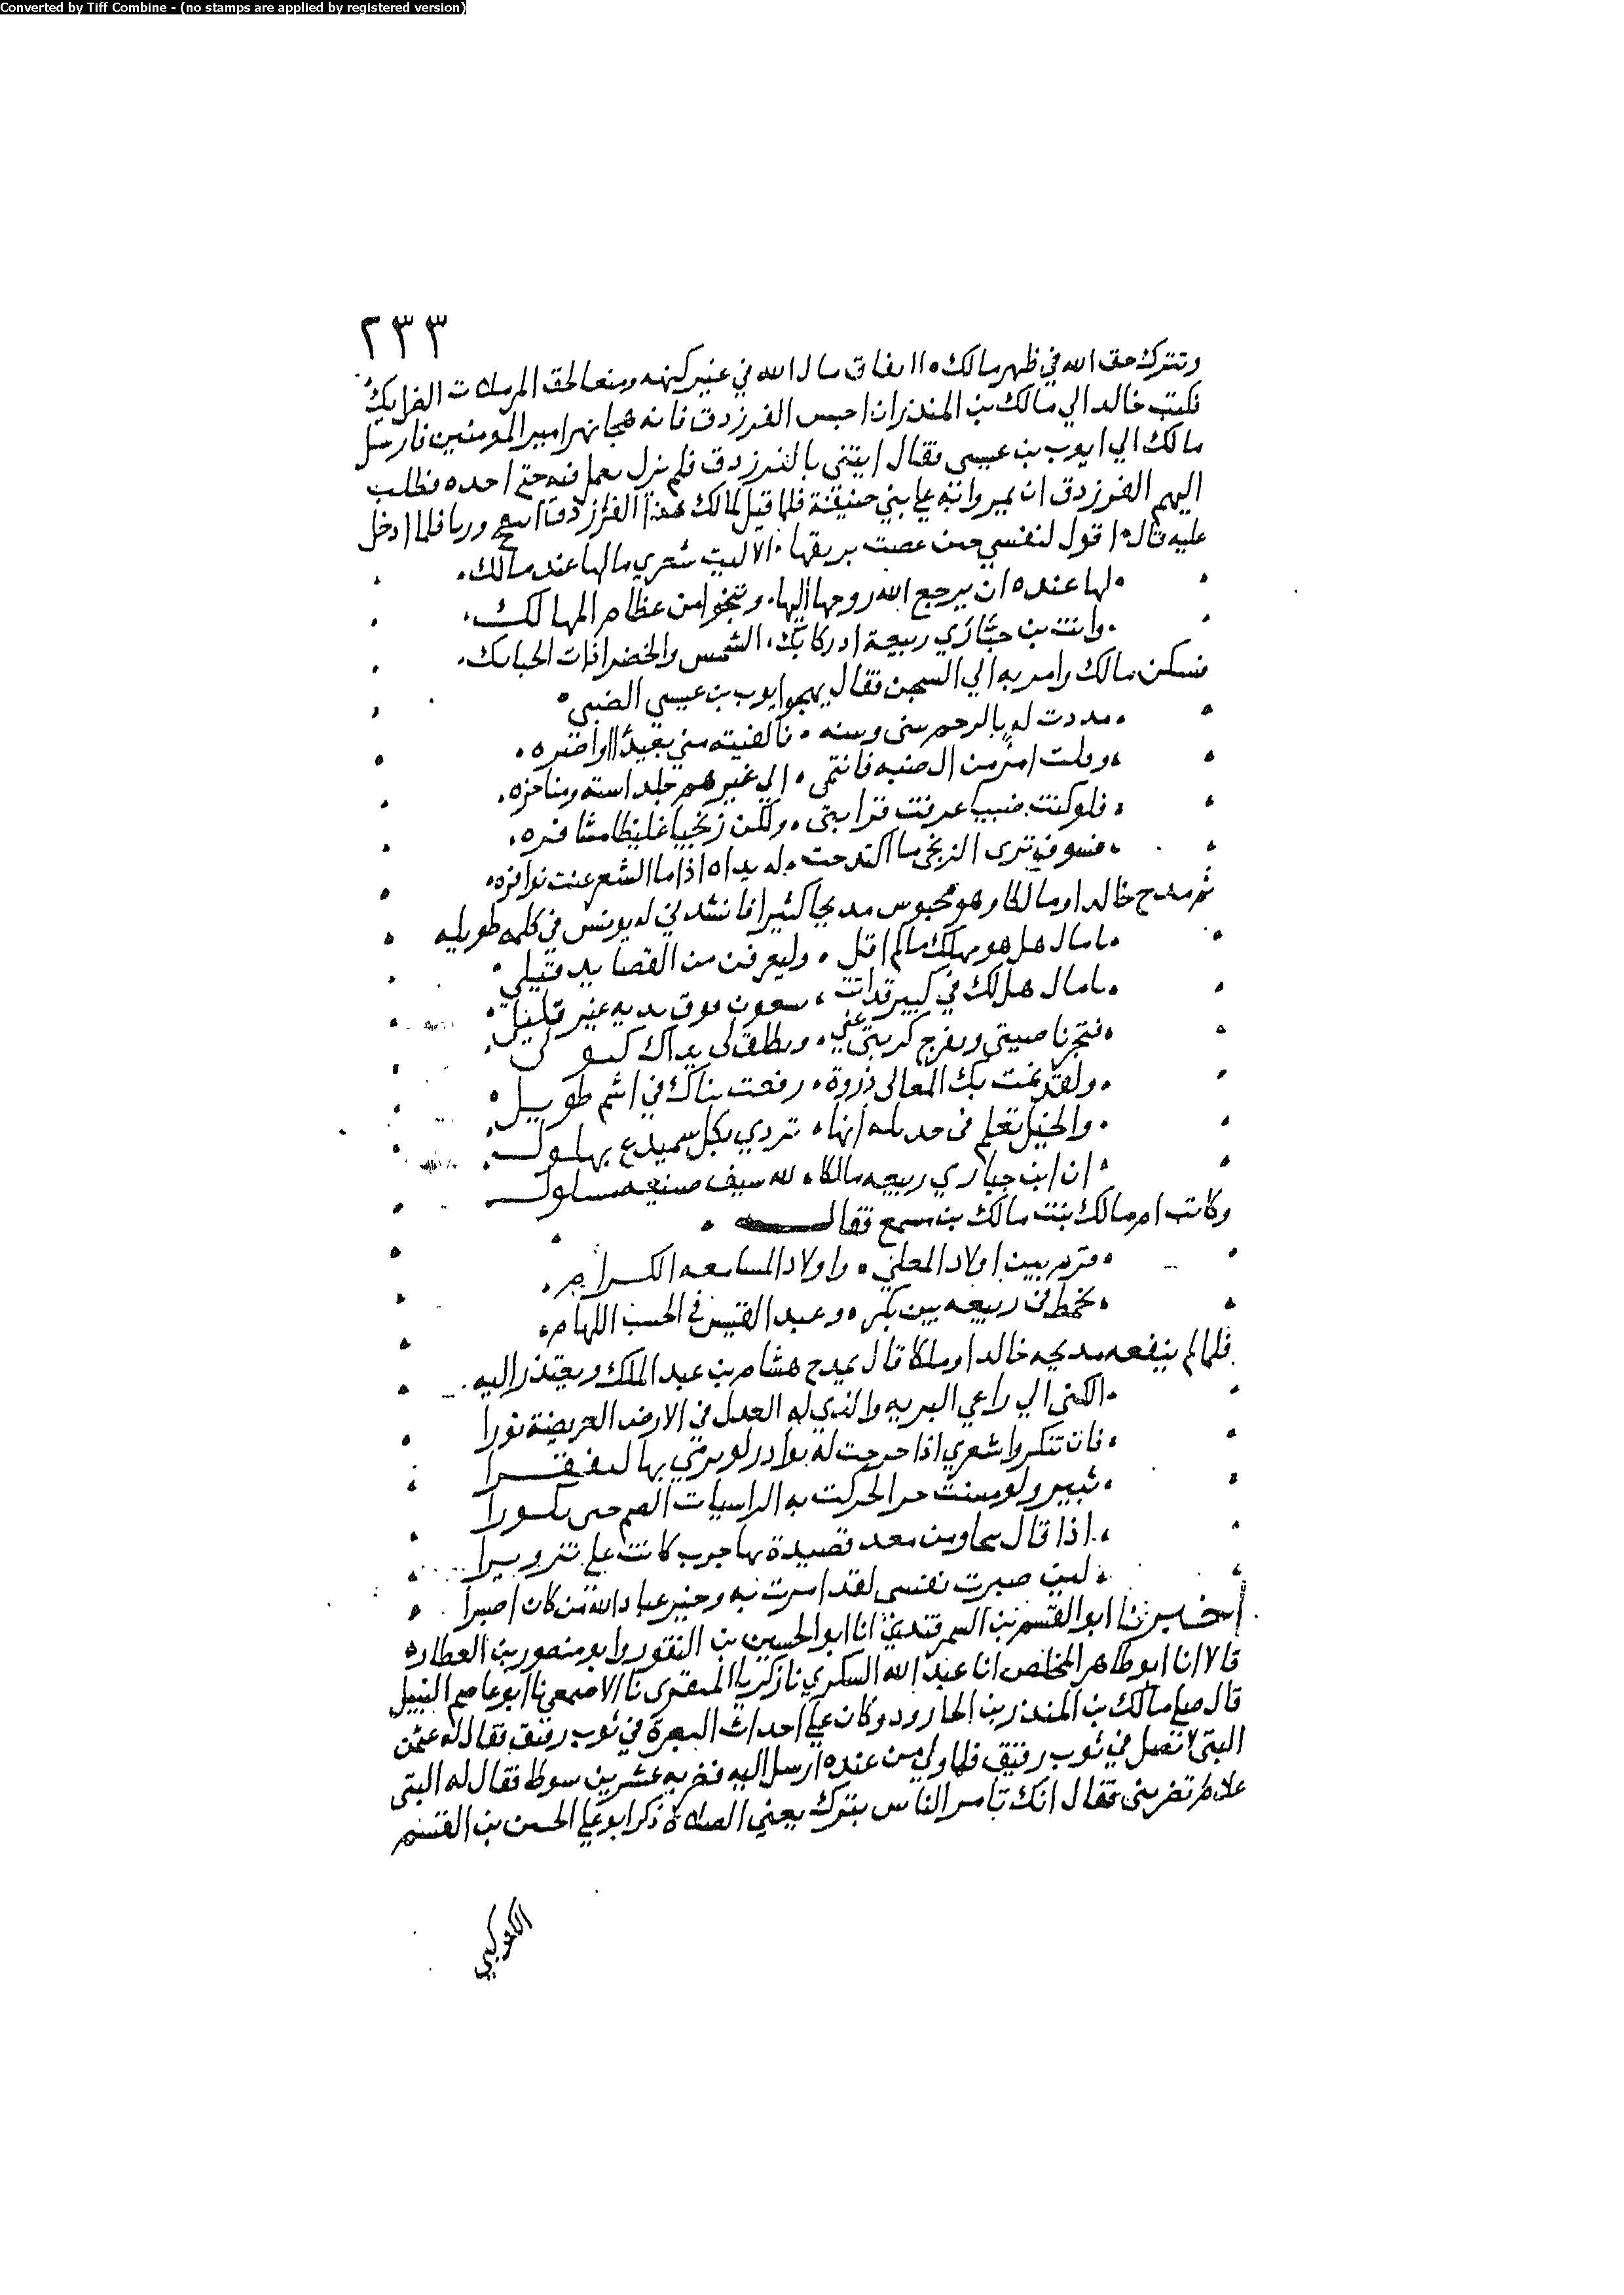 Converted by Tiff Combine - (no stamps are applied by registered version)
٢٣٣
وتترك حق الله في ظهر مالك ٥ اانفاق مال الله في غير كنهه ومنعا لحق المرملات الضرايك
فكتب خالد الي مالك بن المنذر ان احبس الفرزدق فانه هجا نهر امير المومنين فارسل
مالك الي ايوب بن عيسى فقال ايتني بالفرزدق فلم يزل يعمل فيه حتى احده فطلب
اليهم الفرزدق ان يمروا به علي بني حنيفة فلما قيل لمالك هذا الفرزدق انتفخ وربا فلما ادخل
عليه قال ٥ اقول لنفسي حين غصت بريقها ٠ الا ليت شعري مالها عند مالك ٠
٠ لها عنده ان يرجع الله روحها اليها ٠ وتنجو من عظام المهالك ٠
٠ وانت بن جباري ربيعة ادركا بك ٠ الشمس والخضرا ذات الحبايك ٠
فسكن مالك وامر به الي السجن فقال يهجو ايوب بن عيسى الضبي ٥
٠ مددت له بالرحم بيني وبينه ٠ فالفيته مني بعيدا اواصره ٠
٠ وقلت امرؤ من ال ضبه فانتمى ٠ الي غيرهم جلد استه ومناخره ٠
٠ فلو كنت ضبيا عرفت قرابتي ٠ ولكن زنجيا غليظا مشافره ٠
٠ فسوف يرى الزنجي ما اكتدحت ٠ له يداه اذا ما الشعر عنت نوافره ٠
ثم مدح خالدا ومالكا وهو محبوس مديحا كثيرا فانشدني له يونس في كلمه طويله
٠ يا مال هل هو مهلكي مالم اقل ٠ وليعرفن من القصايد قيلي ٠
٠ يا مال هل لك في كبير قد اتت ٠ تسعون فوق يديه غير قليل ٠
٠ فتجر ناصيتي وتفرج كربتي عني ٠ وتطلق لي يداك كبولي ٠
٠ ولقد نمت بك المعالي ذروة ٠ رفعت بناك في اشم طويل ٠
٠ والخيل تعلم في جديله انها ٠ تردي بكل سميدع بهلول ٠
٠ ان ابن جباري ربيعه مالكا ٠ لله سيف صنيعه مسلول
وكانت ام مالك بنت مالك بن مسمع فقال ٠
٠ وقرم بين اولاد المعلى ٠ واولاد المسامعه الكرام ٠
٠ تخمط في ربيعه بين بكر ٠ وعبد القيس في الحسب اللهام ٠
فلما لم ينفعه مديحه خالدا وملكا قال يمدح هشام بن عبد الملك ويعتذر اليه
٠ الكني الي راعي البريه والذي له العدل في الارض العريضة نورا
٠ فان تنكروا شعري اذا خرجت له بوادر لو يرمي بها لتفقرا
٠ ثبير ولو مست حرا لحركت به الراسيات الصم حتى تكورا
٠ اذا قال غاو من معد قصيدة بها جرب كانت علي بزوبرا
٠ لين صبرت نفسي لقد امرت به وخير عباد الله من كان اصبرا
اخبرنا ابو القسم بن السمرقندي انا ابو الحسين بن النقور وابو منصور بن العطار ٥
قالا انا ابو طاهر المخلص انا عبد الله السكري نا زكريا المنقري نا الاصمعي نا ابو عاصم النبيل
قال صلى مالك بن المنذر بن الجارود وكان علي احداث البصرة في ثوب رقيق فقال له عثمن
البتي لا تصل في ثوب رقيق فلما ولي من عنده ارسل اليه فضربه عشرين سوطا فقال له البتي
علام تضربني فقال انك تامر الناس بترك يعني الصلاة ذكر ابو علي الحسين بن القسم
الكوكبي